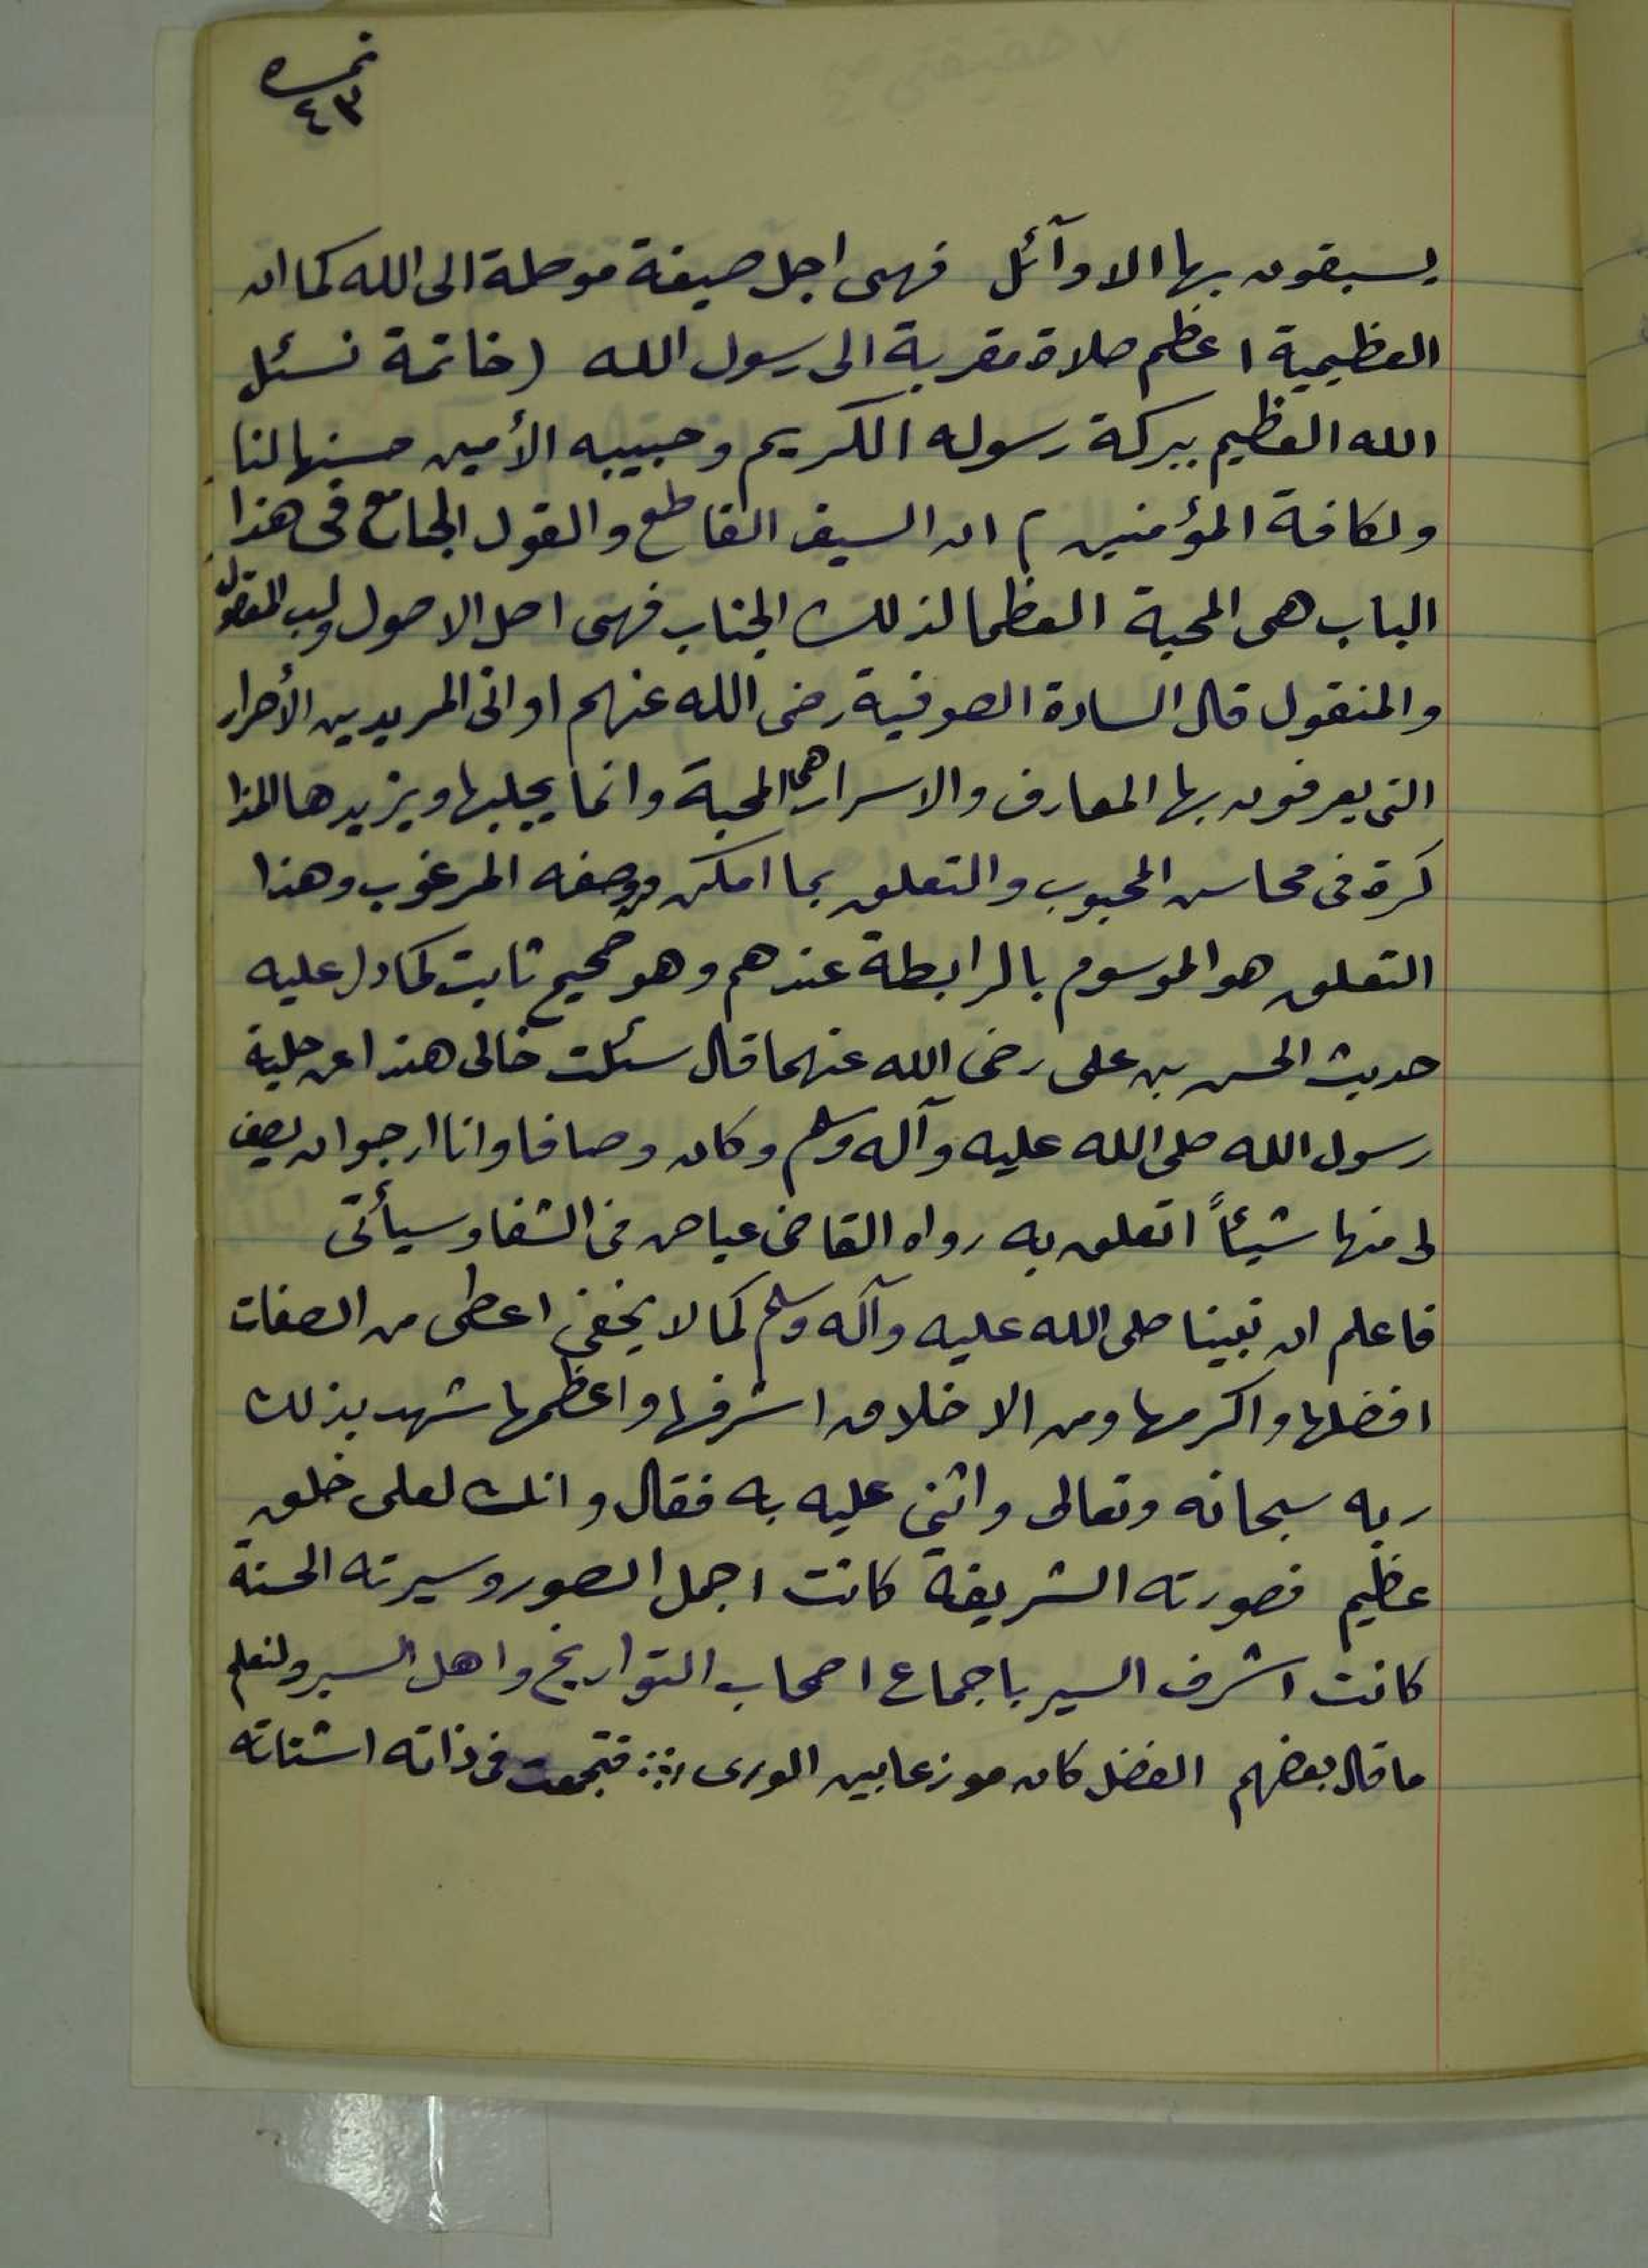 نمره
٤٣
يسبقون بها الاوآئل فهى اجل صيغة موصلة الى الله كما ان
العظيمية اعظم صلاة مقربة الى رسول الله (خاتمة نسئل
الله العظيم ببركة رسوله الكريم وحبيبه الأمين حسنها لنا
ولكافة المؤمنين) ان السيف القاطع والقول الجامع فى هذا
الباب هى المحبة العظما لذلك الجناب فهى اصل الاصول ولب المعقول
والمنقول قال السادة الصوفية رضى الله عنهم اوانى المريدين الأحرار
التى يعرفون بها المعارف والاسرار هى المحبة وانما يجلبها ويزيدها المذا
كرة فى محاسن المحبوب والتعلق بما امكن من وصفه المرغوب وهذا
التعلق هو الموسوم بالرابطة عندهم وهو صحيح ثابت كما دل عليه
حديث الحسن بن على رضى الله عنهما قال سئلت خالى هندا عن حلية
رسول الله صلى الله عليه وآله وسلم وكان وصافا وانا ارجوان يصف
لى منها شيئاً اتعلق به رواه القاضى عياض فى الشفا وسيأتى
فاعلم ان نبينا صلى الله عليه وآله وسلم كما لا يخفى اعطى من الصفات
افضلها واكرمها ومن الاخلاق اشرفها واعظمها شهد بذلك
ربه سبحانه وتعالى واثنى عليه به فقال وانك لعلى خلق
عظيم فصورته الشريفة كانت اجمل الصور وسيرته الحسنة
كانت اشرف السير باجماع اصحاب التواريخ واهل السير ولنعلم
ما قال بعضهم الفضل كان موزعا بين الورى ؛؛ فتجمعت فى ذاته اشتاته